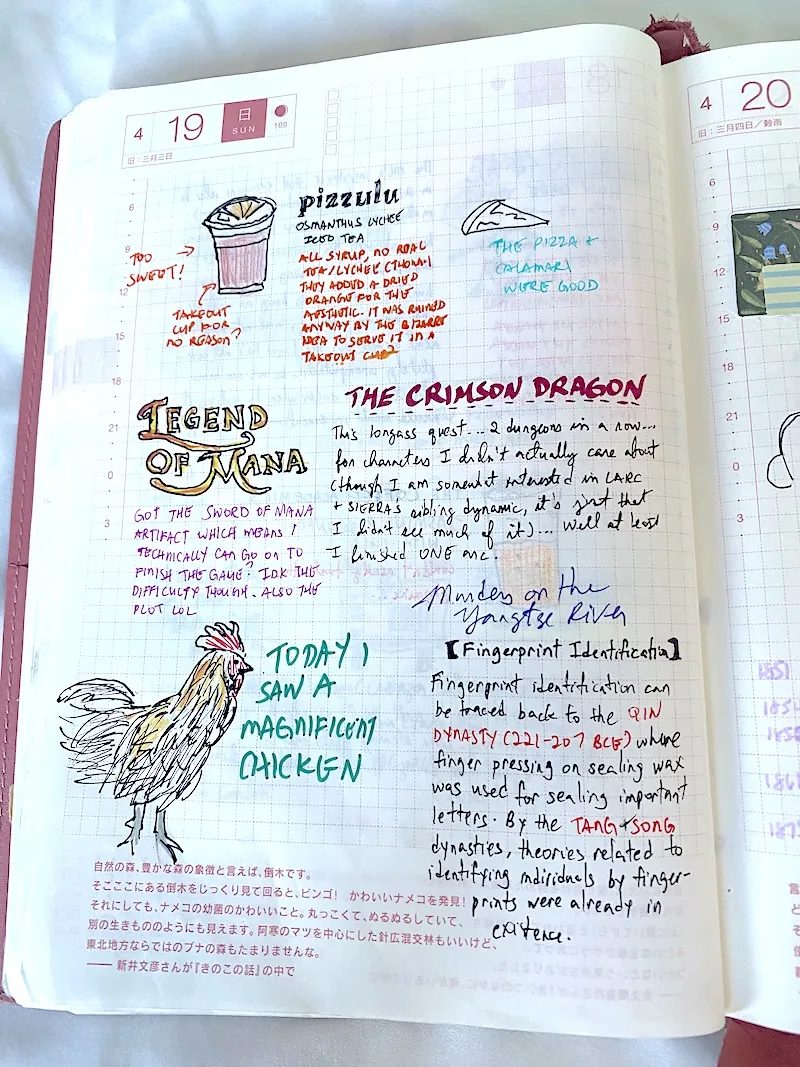 4 19 日 SUN 109
旧：三月三日
6
9
12
15
18
21
0
3
pizzulu
OSMANTHUS LYCHEE
ICED TEA
TOO
SWEET!
TAKEOUT
CUP FOR
NO REASON?
ALL SYRUP, NO REAL
TEA/LYCHEE (THOUGH
THEY ADDED A DRIED
ORANGE FOR THE
AESTHETIC. IT WAS RUINED
ANYWAY BY THE BIZARRE
IDEA TO SERVE IT IN A
TAKEOUT CUP
THE PIZZA +
CALAMARI
WERE GOOD
LEGEND
OF MANA
GOT THE SWORD OF MANA
ARTIFACT WHICH MEANS I
TECHNICALLY CAN GO ON TO
FINISH THE GAME? IDK THE
DIFFICULTY THOUGH. ALSO THE
PLOT LOL
THE CRIMSON DRAGON
This longass quest... 2 dungeons in a row...
for characters I didn't actually care about
(though I am somewhat interested in LARC
+ SIERRA'S sibling dynamic, it's just that
I didn't see much of it)... well at least
I finished ONE arc.
TODAY I
SAW A
MAGNIFICENT
CHICKEN
Murders on the
Yangtse River
【Fingerprint Identification】
Fingerprint identification can
be traced back to the QIN
DYNASTY (221-207 BCE) where
finger pressing on sealing wax
was used for sealing important
letters. By the TANG + SONG
dynasties, theories related to
identifying individuals by finger-
prints were already in
existence.
自然の森、豊かな森の象徴と言えば、倒木です。
そこここにある倒木をじっくり見て回ると、ビンゴ！ かわいいナメコを発見！
それにしても、ナメコの幼菌のかわいいこと。丸っこくて、ぬるぬるしていて、
別の生きもののようにも見えます。阿寒のマツを中心にした針広混交林もいいけど、
東北地方ならではのブナの森もたまりませんな。
—— 新井文彦さんが『きのこの話』の中で
4 20
旧：三月四日／穀雨
6
9
12
15
18
21
0
3